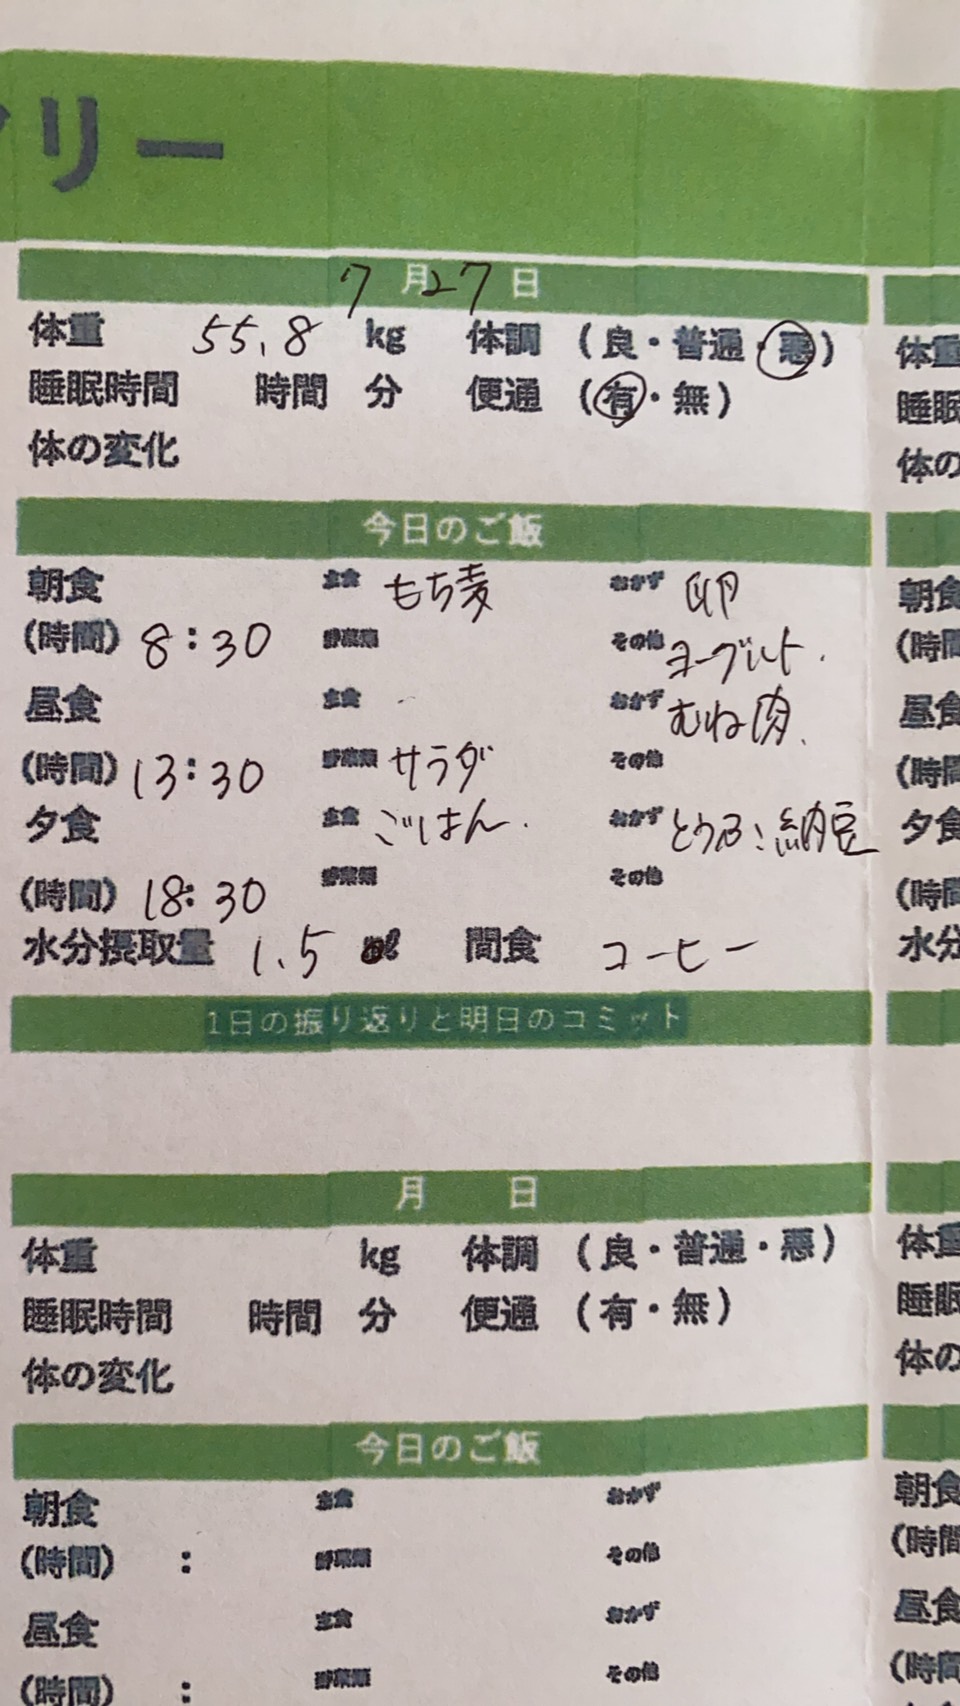 リー
7月27日
体重 55.8 kg 体調 (良・普通・悪)
睡眠時間 時間 分 便通 (有・無)
体の変化
今日のご飯
朝食 主食 もち麦 おかず 卵
(時間) 8:30 野菜類 その他 ヨーグルト.
昼食 主食 おかず むね肉.
(時間) 13:30 野菜類 サラダ その他
夕食 主食 ごはん. おかず とうふ:納豆
(時間) 18:30 野菜類 その他
水分摂取量 1.5 ℓ 間食 コーヒー
1日の振り返りと明日のコミット
月 日
体重 kg 体調 (良・普通・悪)
睡眠時間 時間 分 便通 (有・無)
体の変化
今日のご飯
朝食 主食 おかず
(時間) : 野菜類 その他
昼食 主食 おかず
(時間) : 野菜類 その他
体重
睡眠
体の
朝食
(時間
昼食
(時間
夕食
(時間
水分
体重
睡眠
体の
朝食
(時間
昼食
(時間